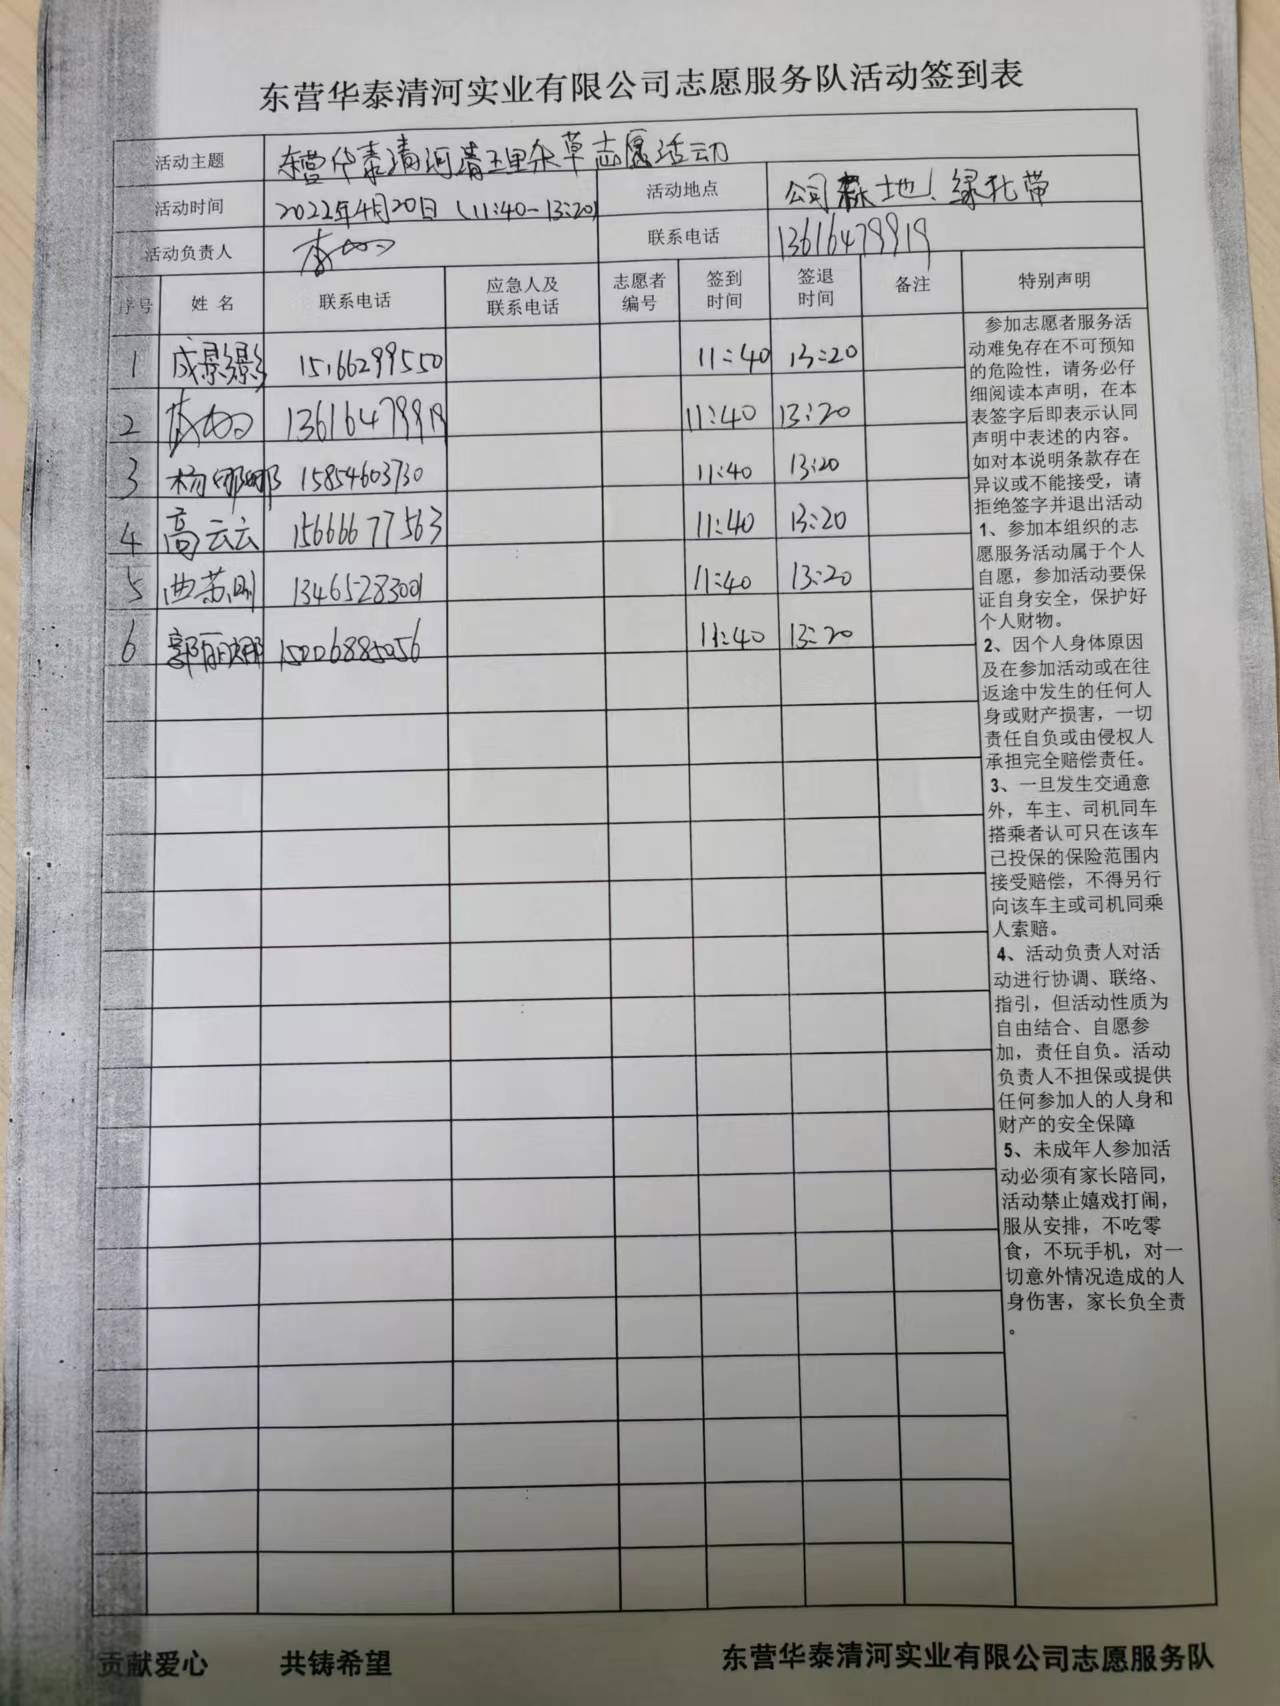 东营华泰清河实业有限公司志愿服务队活动签到表
活动主题 东营华泰清河清理杂草志愿活动
活动时间 2022年4月20日（11:40-13:20） 活动地点 公司 绿化带
活动负责人 联系电话 13616479919
序号 姓名 联系电话 应急人及联系电话 志愿者编号 签到时间 签退时间 备注 特别声明
1 成影影 15166299550 11:40 13:20
2 13616479919 11:40 13:20
3 杨娜娜 15854603730 11:40 13:20
4 高云云 15666677563 11:40 13:20
5 曲苏刚 13465283001 11:40 13:20
6 郭丽娜 15006885056 11:40 13:20
参加志愿者服务活
动难免存在不可预知
的危险性，请务必仔
细阅读本声明，在本
表签字后即表示认同
声明中表述的内容。
如对本说明条款存在
异议或不能接受，请
拒绝签字并退出活动
1、参加本组织的志
愿服务活动属于个人
自愿，参加活动要保
证自身安全，保护好
个人财物。
2、因个人身体原因
及在参加活动或在往
返途中发生的任何人
身或财产损害，一切
责任自负或由侵权人
承担完全赔偿责任。
3、一旦发生交通意
外，车主、司机同车
搭乘者认可只在该车
已投保的保险范围内
接受赔偿，不得另行
向该车主或司机同乘
人索赔。
4、活动负责人对活
动进行协调、联络、
指引，但活动性质为
自由结合、自愿参
加，责任自负。活动
负责人不担保或提供
任何参加人的人身和
财产的安全保障
5、未成年人参加活
动必须有家长陪同，
活动禁止嬉戏打闹，
服从安排，不吃零
食，不玩手机，对一
切意外情况造成的人
身伤害，家长负全责
。
贡献爱心 共铸希望 东营华泰清河实业有限公司志愿服务队